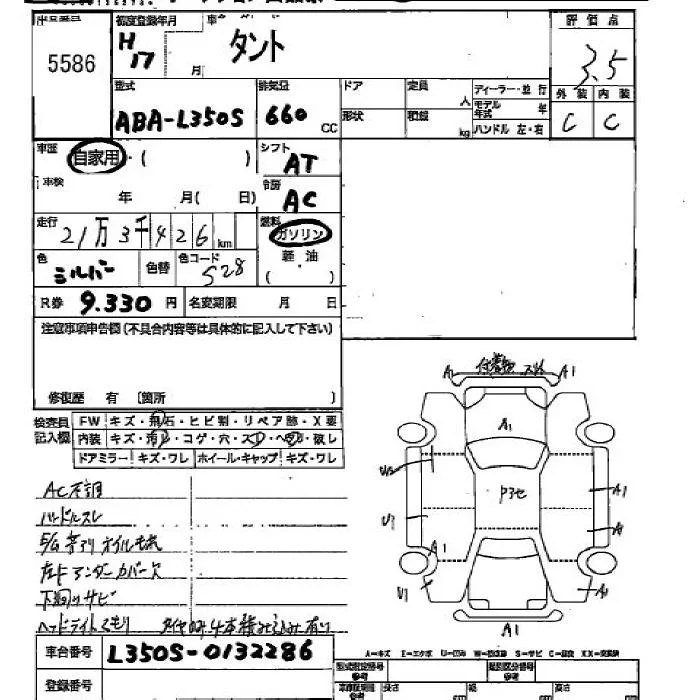 出品番号 初度登録年月 車名
5586 H17 月 タント
評価点
3.5
型式 排気量 ドア 定員 人 ディーラー・並行
ABA-L350S 660 cc 形状 積載 kg モデル年式 年
ハンドル 左・右
外装 内装
C C
車歴 自家用・( ) シフト AT
車検 年 月( 日) 冷房 AC
走行 21万3千426km 燃料 ガソリン
色 シルバー 色替 色コード S28 軽油
( )
R券 9.330 円 名変期限 月 日
注意事項申告欄(不具合内容等は具体的に記入して下さい)
修復歴 有 〔箇所 〕
検査員記入欄
FW キズ・飛石・ヒビ割・リペア跡・X要
内装 キズ・汚レ・コゲ・穴・スレ・ヘタリ・破レ
ドアミラー キズ・ワレ ホイールキャップ キズ・ワレ
AC不調
ハンドルスレ
E/G オイル
アンダーカバー欠
下廻りサビ
ヘッドライトくもり タイヤのみ4本積み込み有り
車台番号 L350S-0132286
登録番号
A1 付着物 スリキズ A1
A1
U2 アコセ A1
U1 A1
A1
U1
A1
A-キズ E-エクボ U-凹み S-サビ C-腐食 XX-交換済
型式指定番号 類別区分番号
参考 参考
長さ 幅 高さ